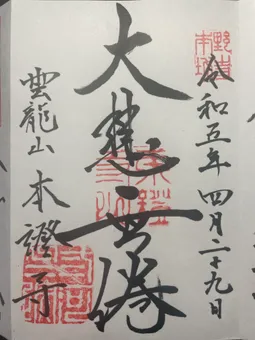 野寺本坊
令和五年四月二十九日
大悲無倦
雲龍山 本證寺